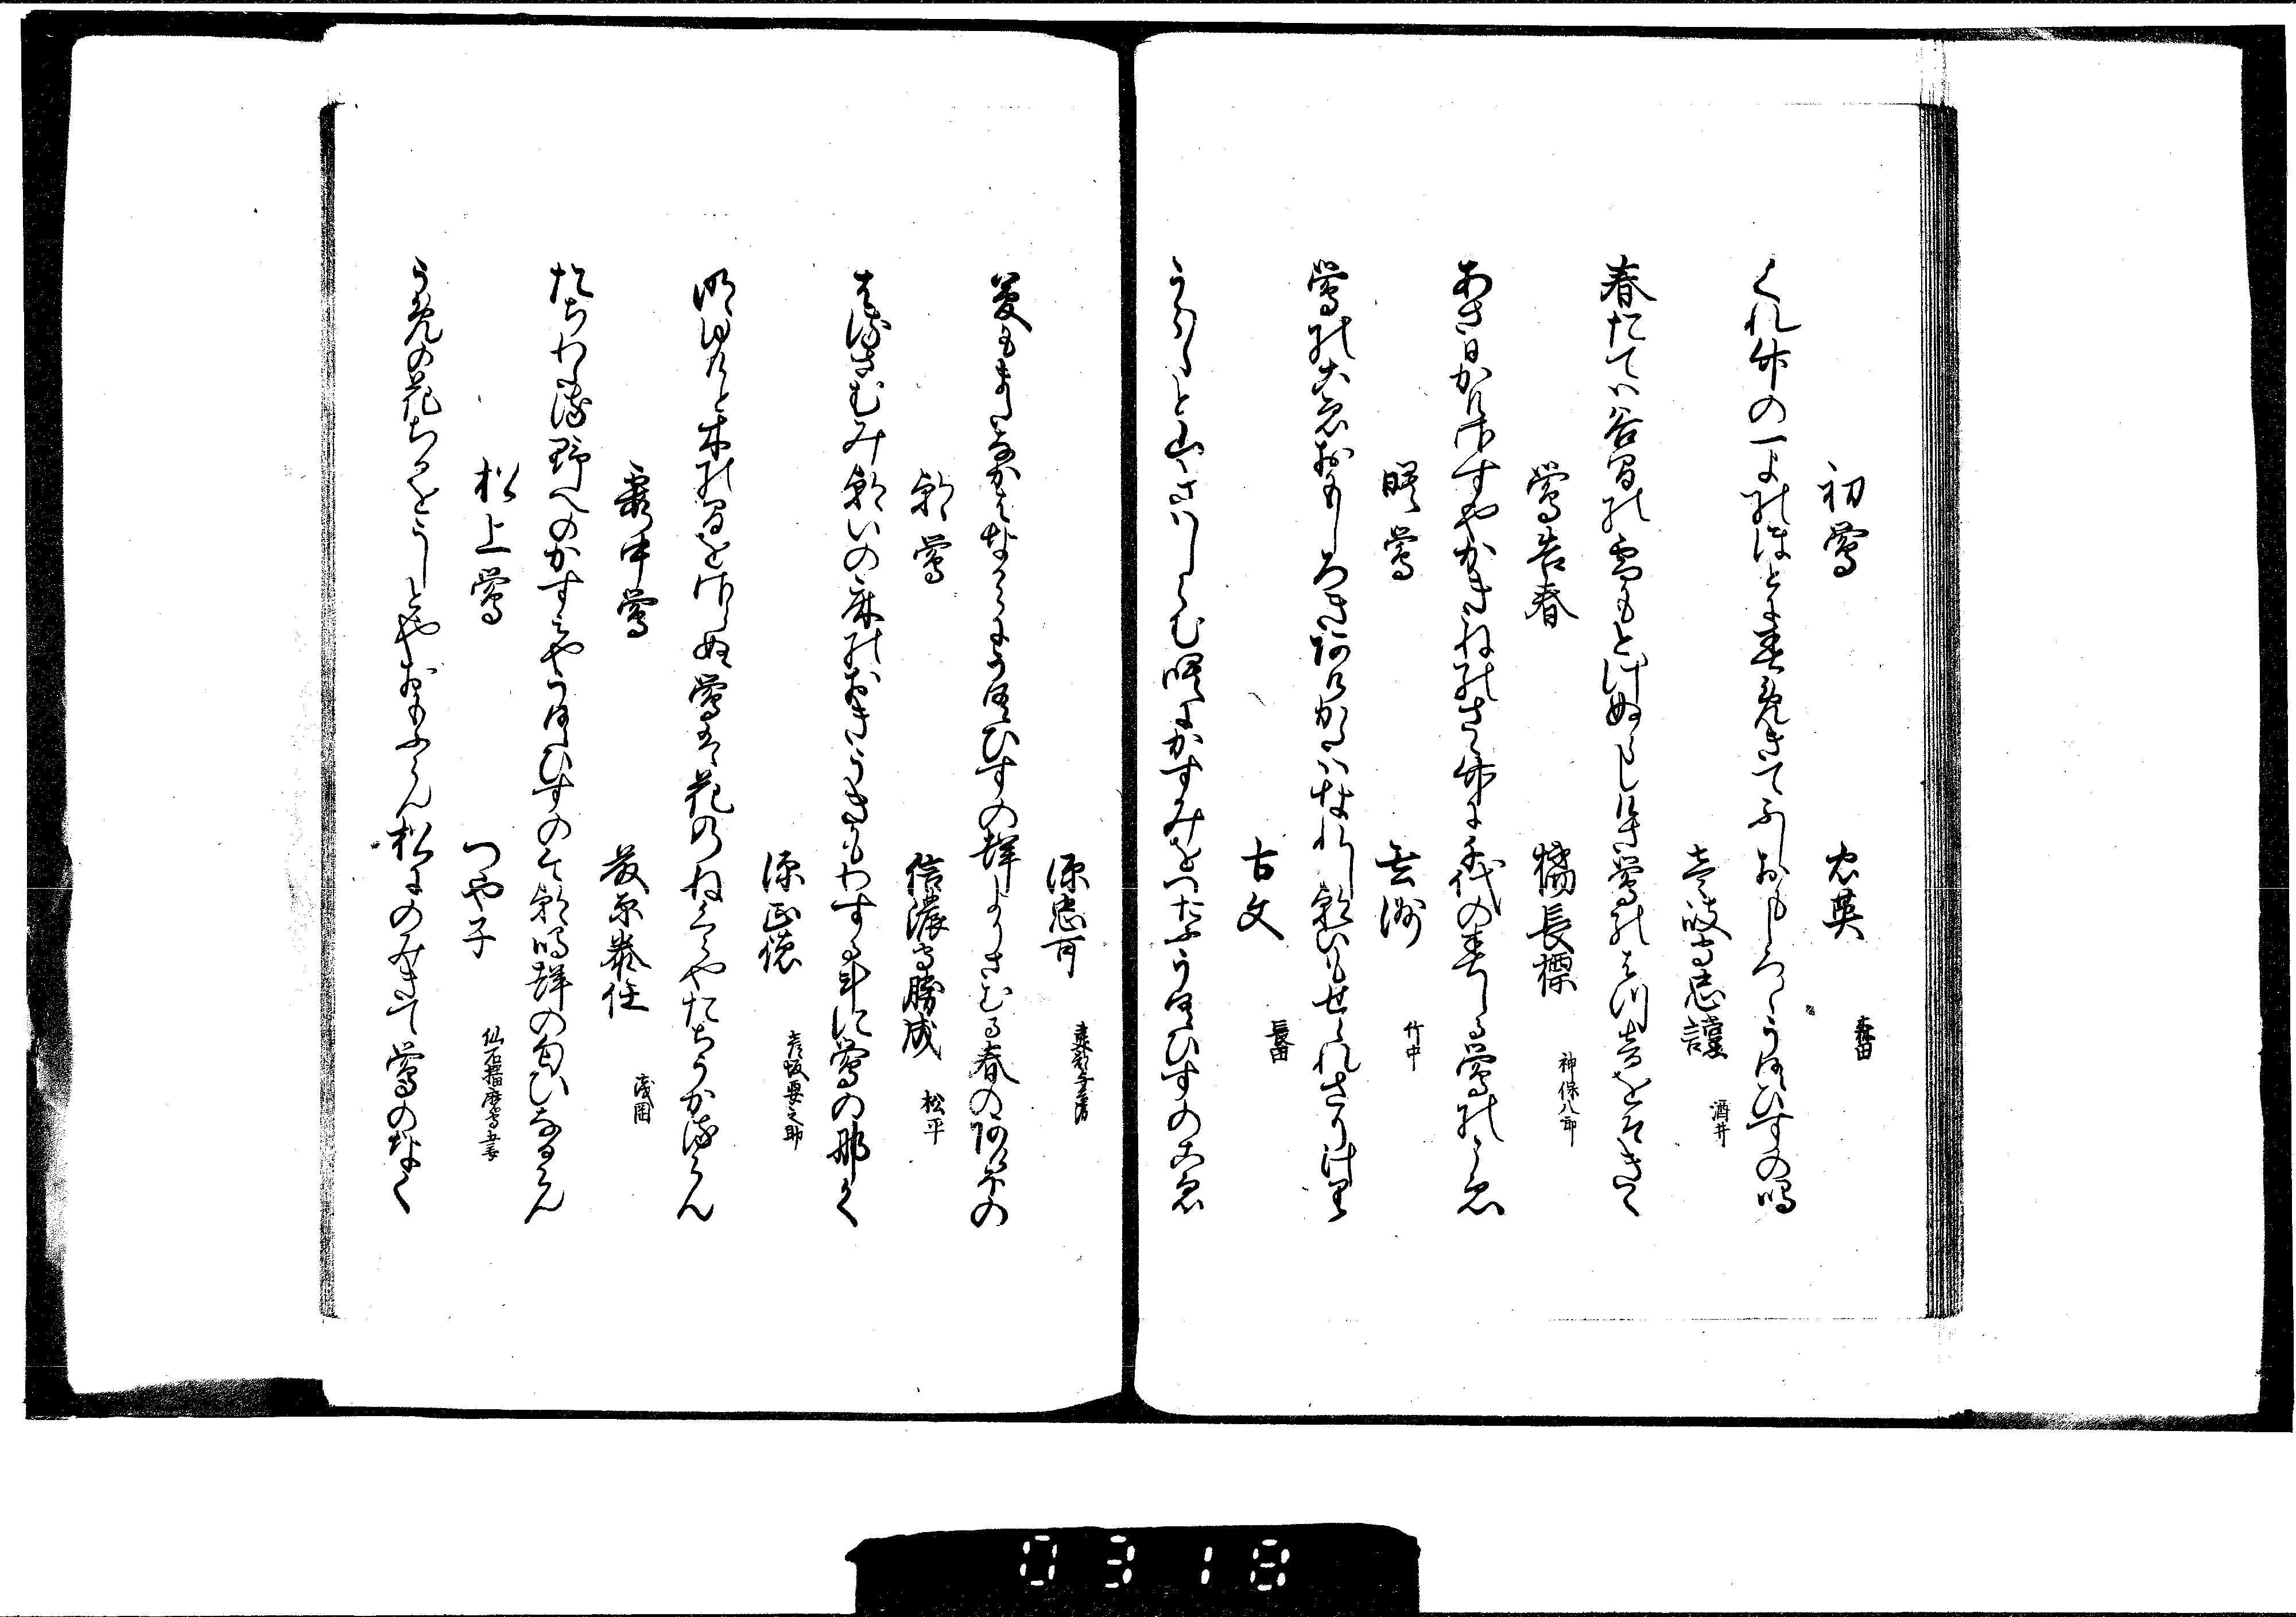 初鶯　忠英　森田
くれ竹の一よのほとに春めきてふしおもしろくうくひすの鳴
壱岐守忠讜　酒井
春たては谷間の雪もとけぬらしけさ鶯のはつ音をそきく
鶯告春　橘長標　神保八郎
あさ日かけさすやかきねのさゝ竹に千代の春しる鶯のこゑ
曙鶯　　竹中
鶯のこゑおもしろきあけかたはなれし朝いもせられさりけり
古文　長田
うら／＼と山きはしらむ曙にかすみをつたふうくひすのこゑ
源忠可
夢もまたなかはなからにうくひすの声よりさむる春のあけほの
朝鶯　信濃守勝成　松平
またさむみ朝いの床のおきうきもわするはかりに鶯のなく
源正徳　彦坂要之助
明ぬれと木の間をさらぬ鶯は花のねくらやたちうかるらん
霞中鶯　藤原泰任　浅岡
たちわたる野へのかすみやうくひすのけさ鳴声の匂ひなるらん
松上鶯　つや子　仙石播磨守妻
うめの花ちるをうしとやおもふらん松にのみきて鶯のなく